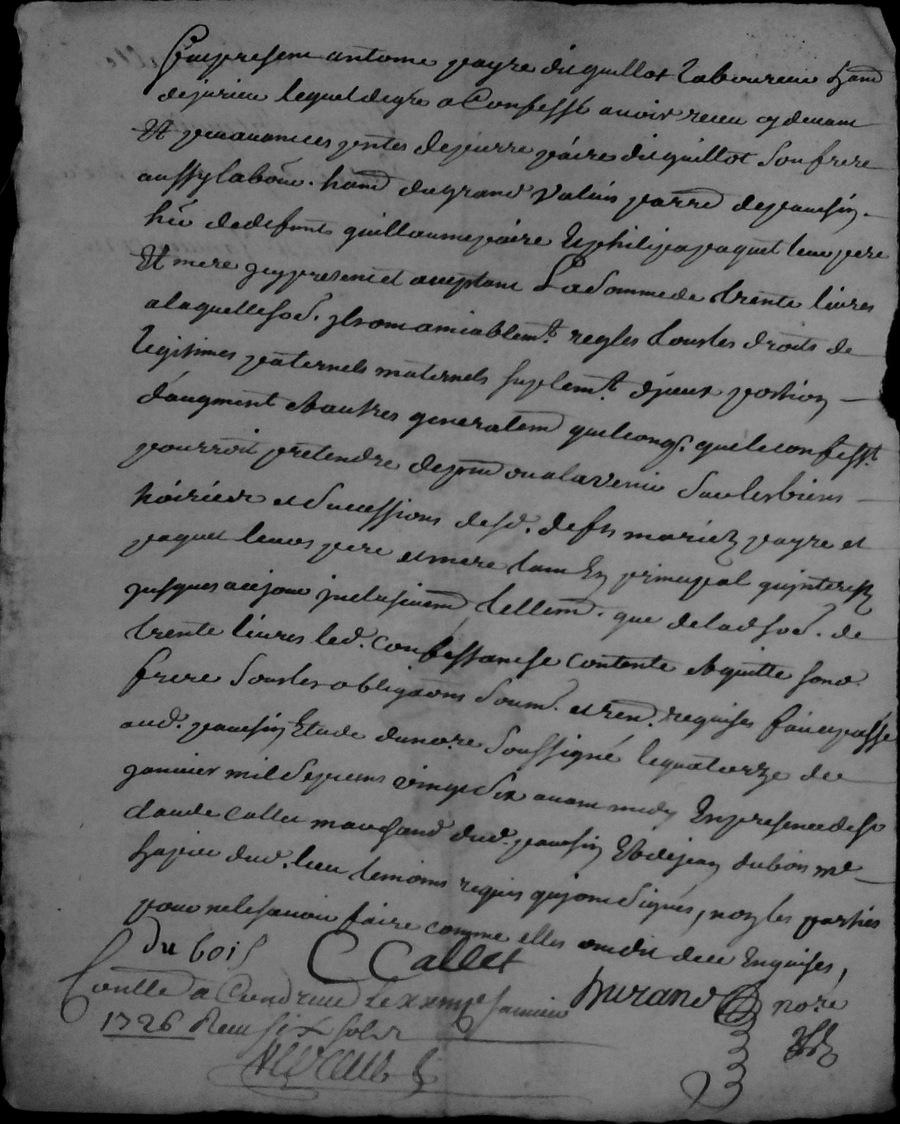 Fut present antoine payre dit guillot laboureur hant
de jurieu lequel de gré a Confessé avoir receu cy devant
Et parauant ces pntes de pierre päire dit guillot son frere
aussy labour. hant du grand Valuis parrë de peaussin
hër de defunts guillaume päire & philipa paquet leur pere
Et mere gy present et aceptant La somme de trente livres
a laquelle sōē. ils ont amiablemt. regles tous les droits de
legitimes paternels maternels suplemt. d'jceux portion
d'augment et autres generalem quelconqs. que le confesst.
pourroit pretendre de pnt ou a lavenir sur les biens
hoiries et successions desd. defts mariez payre et
paquet leurs pere et mere tant En principal qu'interestz
jusques a ce jour jnclusivem tellem. que de lad. sōē. de
trente livres led. confessant se contente et quitte sond.
frere sous les obligāōns soum. et ren. requises fait et passé
aud. peaussin Etude du nore. soussigné le quatorze de
janvier mil sept cens vingt six avant midy En presence de sr
claude callet marchand dud. peaussin Et de jean dubois me
tapier dud. lieu temoins requis qui ont signés, non les parties
pour ne le savoir faire comme elles ont dit de ce Enquises,
du bois C Callet
Durand nore
Conllé a Condrieu le xxvije janvier
1726 Receu six sols